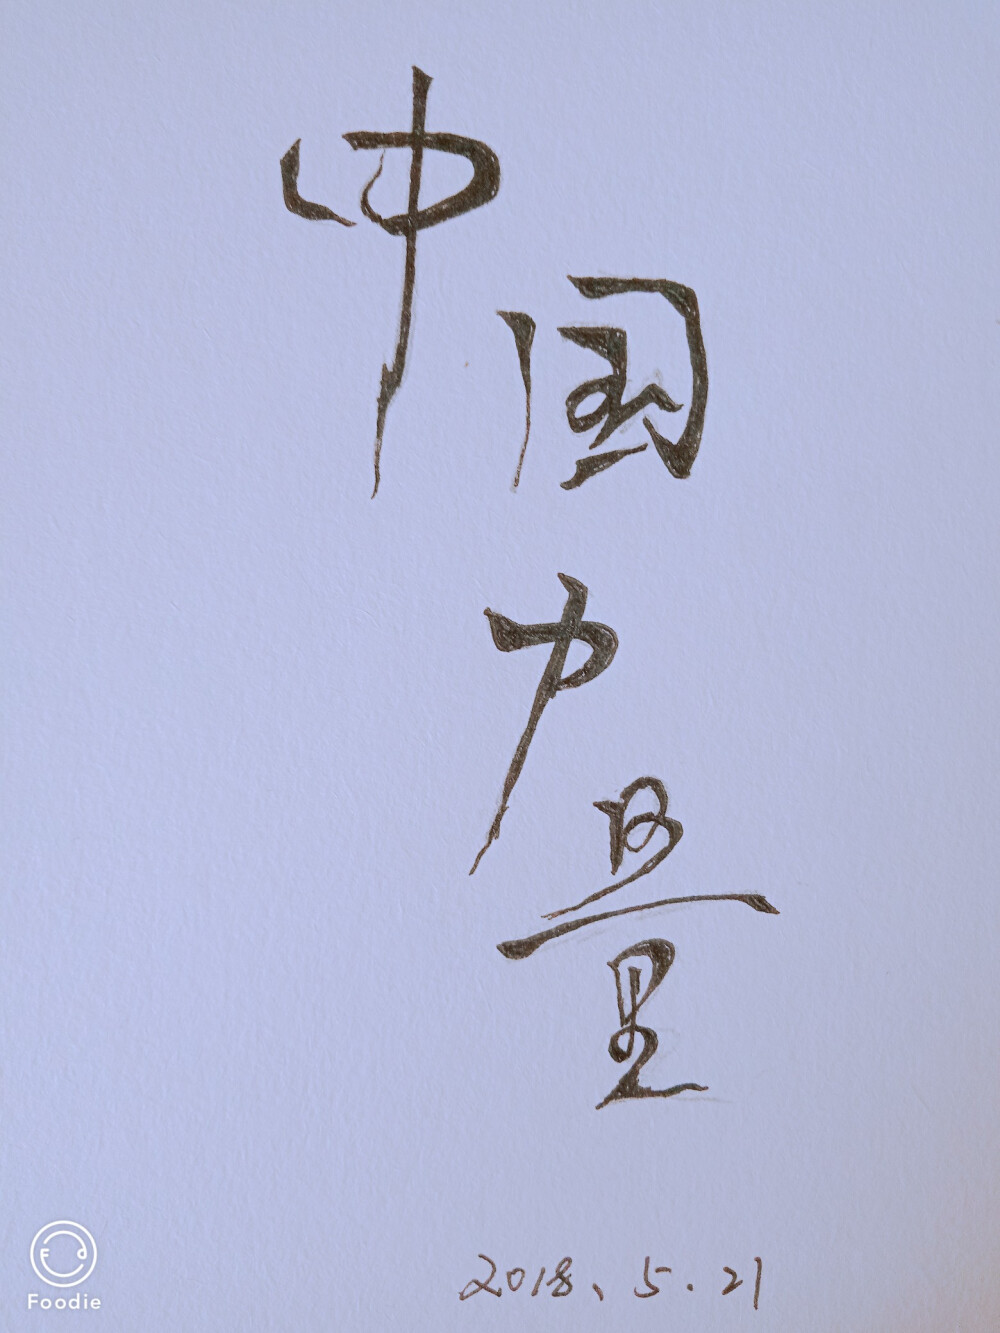 中国
力量
2018、5.21
Foodie